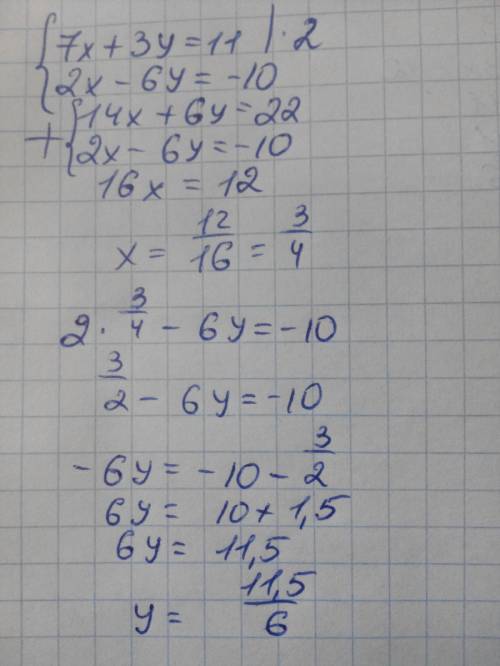 7x + 3y = 11 | · 2
2x - 6y = -10
+ 14x + 6y = 22
2x - 6y = -10
16x = 12
x = 12/16 = 3/4
2 · 3/4 - 6y = -10
3/2 - 6y = -10
-6y = -10 - 3/2
6y = 10 + 1,5
6y = 11,5
y = 11,5/6